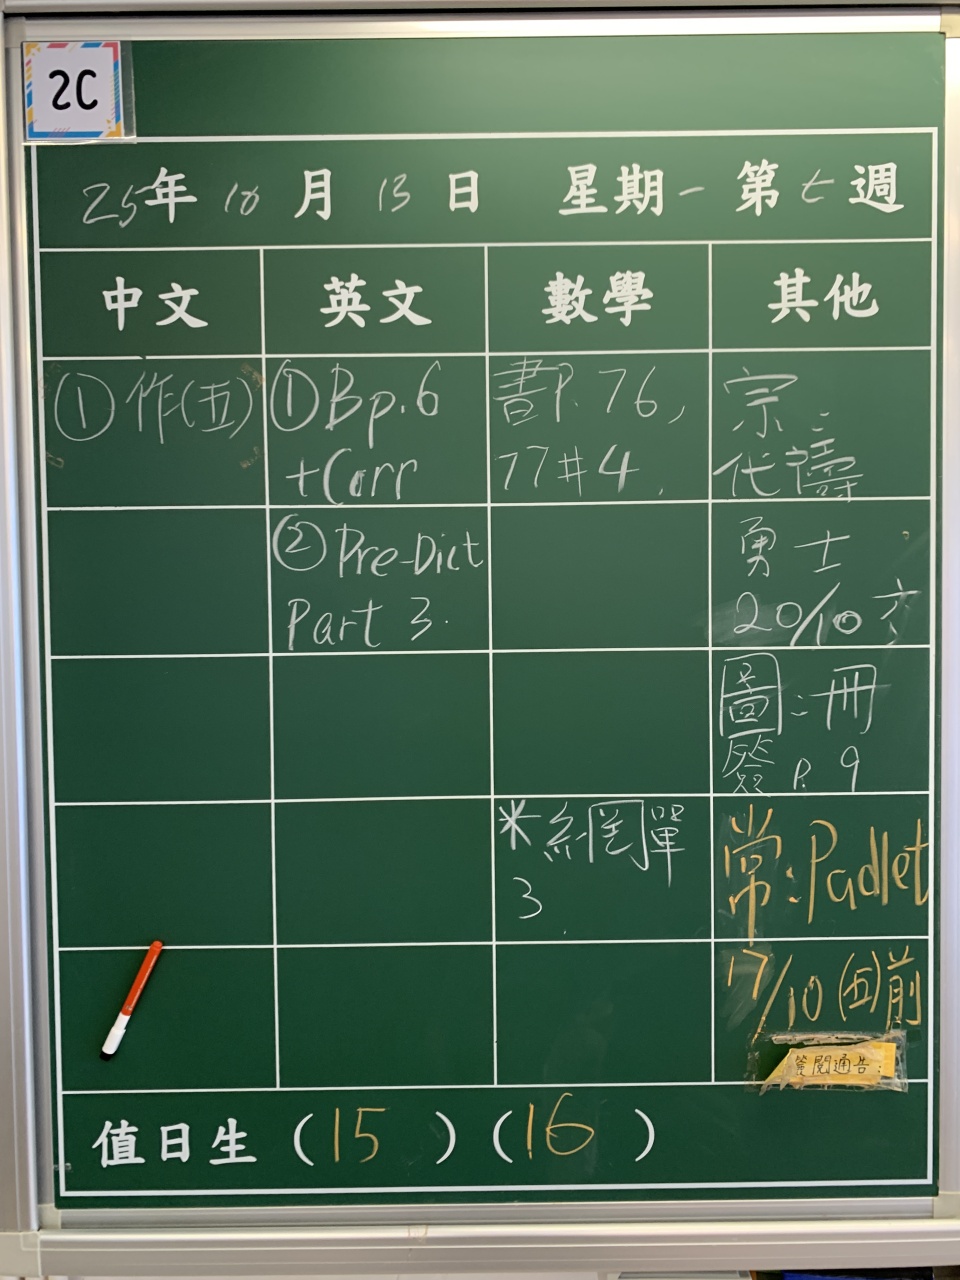 2C
25年 10月 13日 星期一 第七週
中文 英文 數學 其他
①作(五)
①Bp.6
+Corr
②Pre-Dict
Part 3.
書P.76,
77#4.
*網單
3.
宗:
代禱
勇士
20/10 交
圖:冊
簽 P.9
常:Padlet
17/10 (五)前
簽閱通告:
值日生 (15) (16)